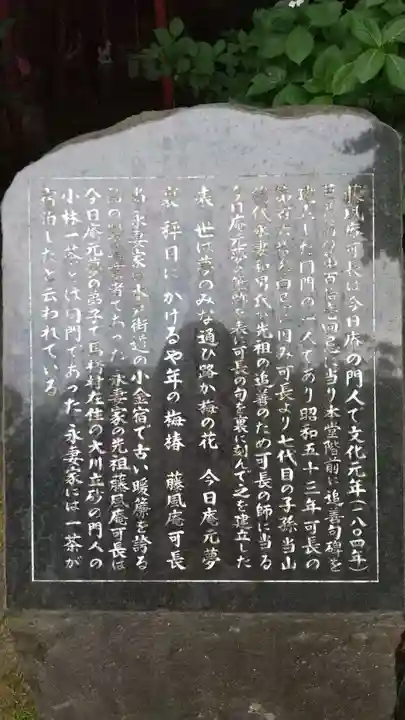 藤風庵可長は今日庵の門人で文化元年(一八〇四年)
芭蕉翁の第百 回忌に当り本堂階前に追善句碑を
建立した門門の一人であり昭和五十三年可長の
第百六十 回忌に因み可長より七代目の子孫当山
総代永妻和男氏が先祖の追善のため可長の師に当る
今日庵元夢の筆跡を表に可長の句を裏に刻んで之を建立した
表 世は夢のみな通ひ路か梅の花 今日庵元夢
裏 拝日にかけるや年の梅椿 藤風庵可長
当永妻家は水戸街道の小金宿で古い暖簾を誇る
永妻家の先祖藤風庵可長は
今日庵元夢の弟子で馬橋村在住の大川立砂の門人の
小林一茶とは同門であった永妻家には一茶が
宿泊したと云われている